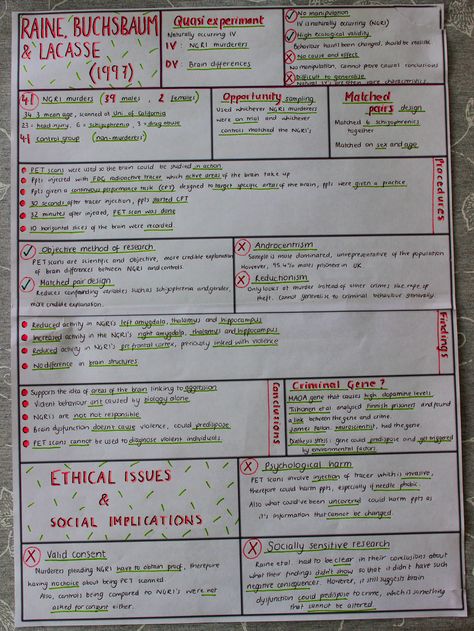 RAINE, BUCHSBAUM
& LACASSE
(1997)
Quasi experiment
Naturally occurring IV
IV: NGRI murderers
DV: Brain differences
No manipulation
IV is naturally occurring (NGRI)
High ecological validity
Behaviour hasn't been changed, should be realistic
No cause and effect
No manipulation, cannot prove causal conclusions
Difficult to generalise
41 NGRI murders (39 males, 2 females)
34.3 mean age, scanned at Uni of California
23 = head injury, 6 = schizophrenia, 3 = drug abuse
41 control group (non-murderers)
Opportunity sampling
Used whichever NGRI murders
were on trial and whichever
controls matched the NGRI's
Matched
pairs design
Matched 6 schizophrenics
together
Matched on sex and age
Procedures
PET scans were used so the brain could be studied in action
Ppts injected with FDG radioactive tracer which active areas of the brain take up
Ppts given a continuous performance task (CPT) designed to target specific areas of the brain, ppts were given a practice
30 seconds after tracer injection, ppts started CPT
32 minutes after injected, PET scan was done
10 horizontal slices of the brain were recorded
Objective method of research
PET scans are scientific and objective, more credible explanation
of brain differences between NGRI and controls.
Matched pair design
Reduces confounding variables such as schizophrenia and gender,
more credible explanation.
Androcentrism
Sample is male dominated, unrepresentative of the population
However, 95.4% males prisoner in UK
Reductionism
Only looks at murder instead of other crimes like rape or
theft. Cannot generalise to criminal behaviour generally.
Findings
Reduced activity in NGRI's left amygdala, thalamus and hippocampus
Increased activity in the NGRI's right amygdala, thalamus and hippocampus
Reduced activity in NGRI's pre frontal cortex, previously linked with violence
No difference in brain structures.
Conclusions
Supports the idea of areas of the brain linking to aggression
Violent behaviour isnt caused by biology alone
NGRIs are not not responsible
Brain dysfunction doesnt cause violence, could predispose
PET scans cannot be used to diagnose violent individuals
Criminal Gene?
MAOA gene that causes high dopamine levels
Tiihonen et al analysed Finnish prisoners and found
a link between the gene and crime.
James Fallon, neuroscientist, had the gene.
Diathesis stress: gene could predispose and get triggered
by environmental factors.
ETHICAL ISSUES
&
SOCIAL IMPLICATIONS
Psychological harm
PET scans involve injection of tracer which is invasive,
therefore could harm ppts, especially if needle phobic.
Also what could've been uncovered could harm ppts as
it's information that cannot be changed.
Valid consent
Murderers pleading NGRI have to obtain proof, therefore
having no choice about being PET scanned.
Also, controls being compared to NGRI's were not
asked for consent either.
Socially sensitive research
Raine et al. had to be clear in their conclusions about
what their findings didn't show so that it didn't have such
negative consequences. However, it still suggests brain
dysfunction could predispose to crime, which is something
that cannot be altered.